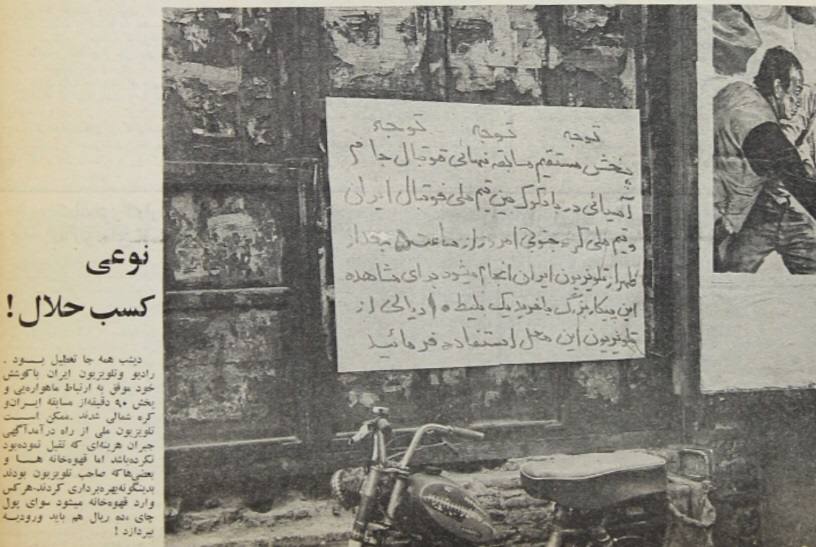 نوعی
کسب حلال!
دیشب همه جا تعطیل بود.
رادیو وتلویزیون ایران باکوشش
خود موفق به ارتباط ماهواره‌یی و
پخش ۹۰ دقیقه‌از مسابقه ایران‌و
کره شمالی شدند.ممکن است
تلویزیون ملی از راه درآمدآگهی
جبران هزینه‌ای که تقبل نموده‌بود
نکرده‌باشد اما قهوه‌خانه ها و
بعضی‌هاکه صاحب تلویزیون بودند
بدینگونه‌بهره‌برداری کردند.هرکس
وارد قهوه‌خانه میشود سوای پول
چای ،ده ریال هم باید ورودیه
بپردازد!
توجه توجه توجه
پخش مستقیم مسابقه نهائی فوتبال جام
آسیائی در بانکوک بین تیم ملی فوتبال ایران
و تیم ملی کره جنوبی امروز از ساعت ۵ بعداز
ظهر از تلویزیون ایران انجام میشود برای مشاهده
این پیکار بزرگ باخرید یک بلیط ۱۰ ریالی از
تلویزیون این محل استفاده فرمائید